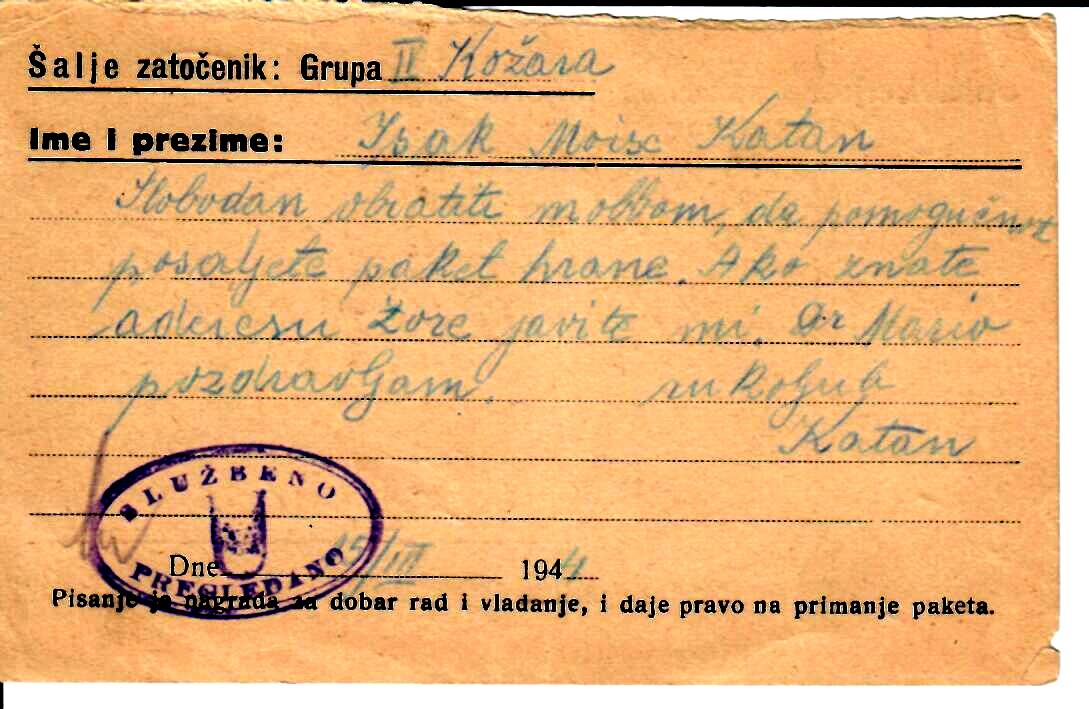 Šalje zatočenik: Grupa II Kožara
Ime i prezime: Isak Moise Katan
Slobodan obratiti molbom, da pomogućnost
posaljete paket hrane. Ako znate
adresu Zore javite mi. Dr Mario
pozdravljam. rukoljub
Katan
SLUŽBENO
PREGLEDANO
Dne 15/III 1944
Pisanje je nagrada za dobar rad i vladanje, i daje pravo na primanje paketa.